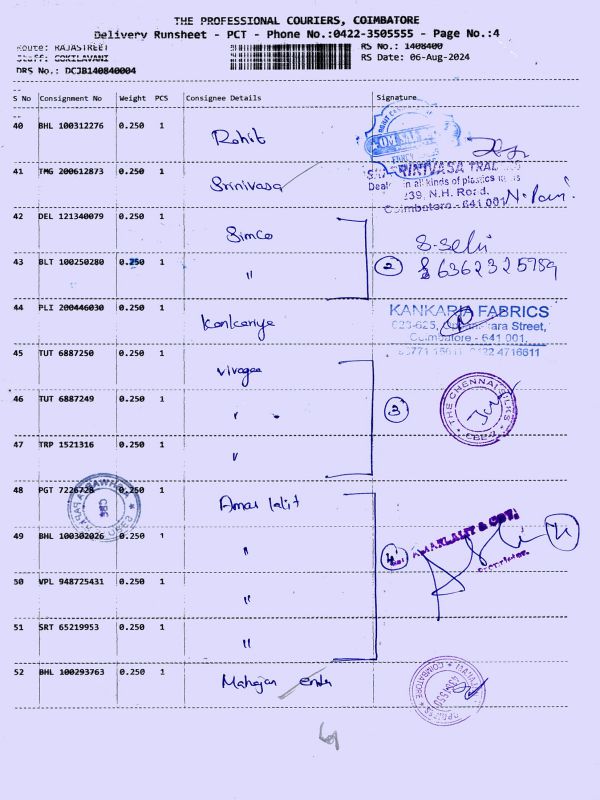 THE PROFESSIONAL COURIERS, COIMBATORE
Delivery Runsheet - PCT - Phone No.:0422-3505555 - Page No.:4
Route: RAJASTREET
RS No.: 1408400
Staff: GOKILAVANI
RS Date: 06-Aug-2024
DRS No.: DCJB140840004
S No Consignment No Weight PCS Consignee Details Signature
40 BHL 100312276 0.250 1 Rohit
41 TMG 200612873 0.250 1 Srinivasa
SRINIVASA
in all kinds of plastics
239, N.H. Road.
Coimbatore - 641 001
42 DEL 121340079 0.250 1 Simco
43 BLT 100250280 0.250 1 " 2
44 PLI 200446030 0.250 1
KANKARIA FABRICS
Street,
Coimbatore - 641 001.
45 TUT 6887250 0.250 1
46 TUT 6887249 0.250 1 " 3
THE CHENNAI SILKS
CBE-1
47 TRP 1521316 0.250 1 "
48 PGT 7226728 0.250 1 Amar lalit
49 BHL 100302026 0.250 1 " 4
50 VPL 948725431 0.250 1 "
51 SRT 65219953 0.250 1 "
52 BHL 100293763 0.250 1 Mahajan
COIMBATORE